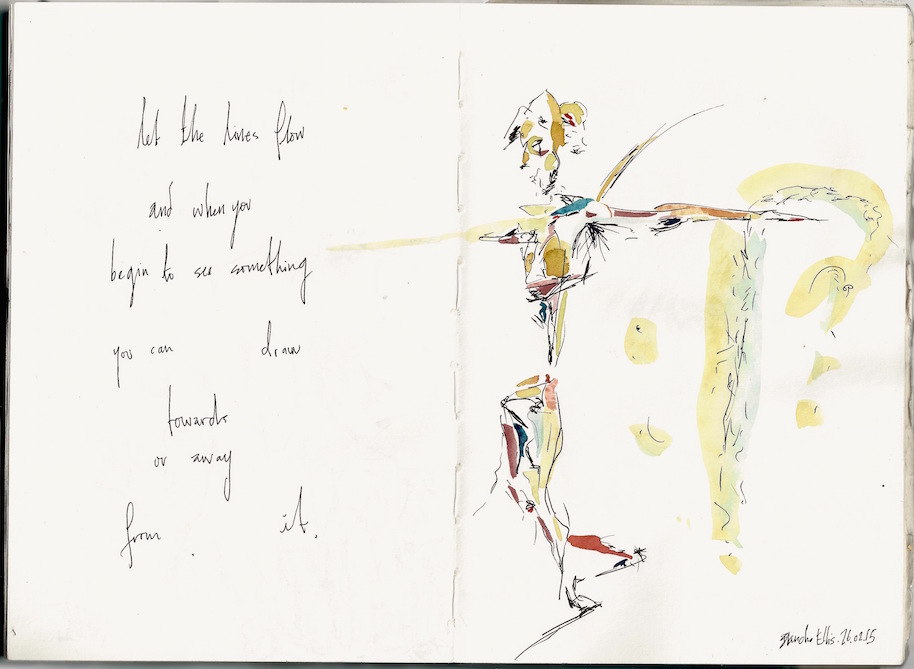 let the lines flow
and when you
begin to see something
you can draw
towards
or away
from it.
Blanche Ellis. 26.02.15